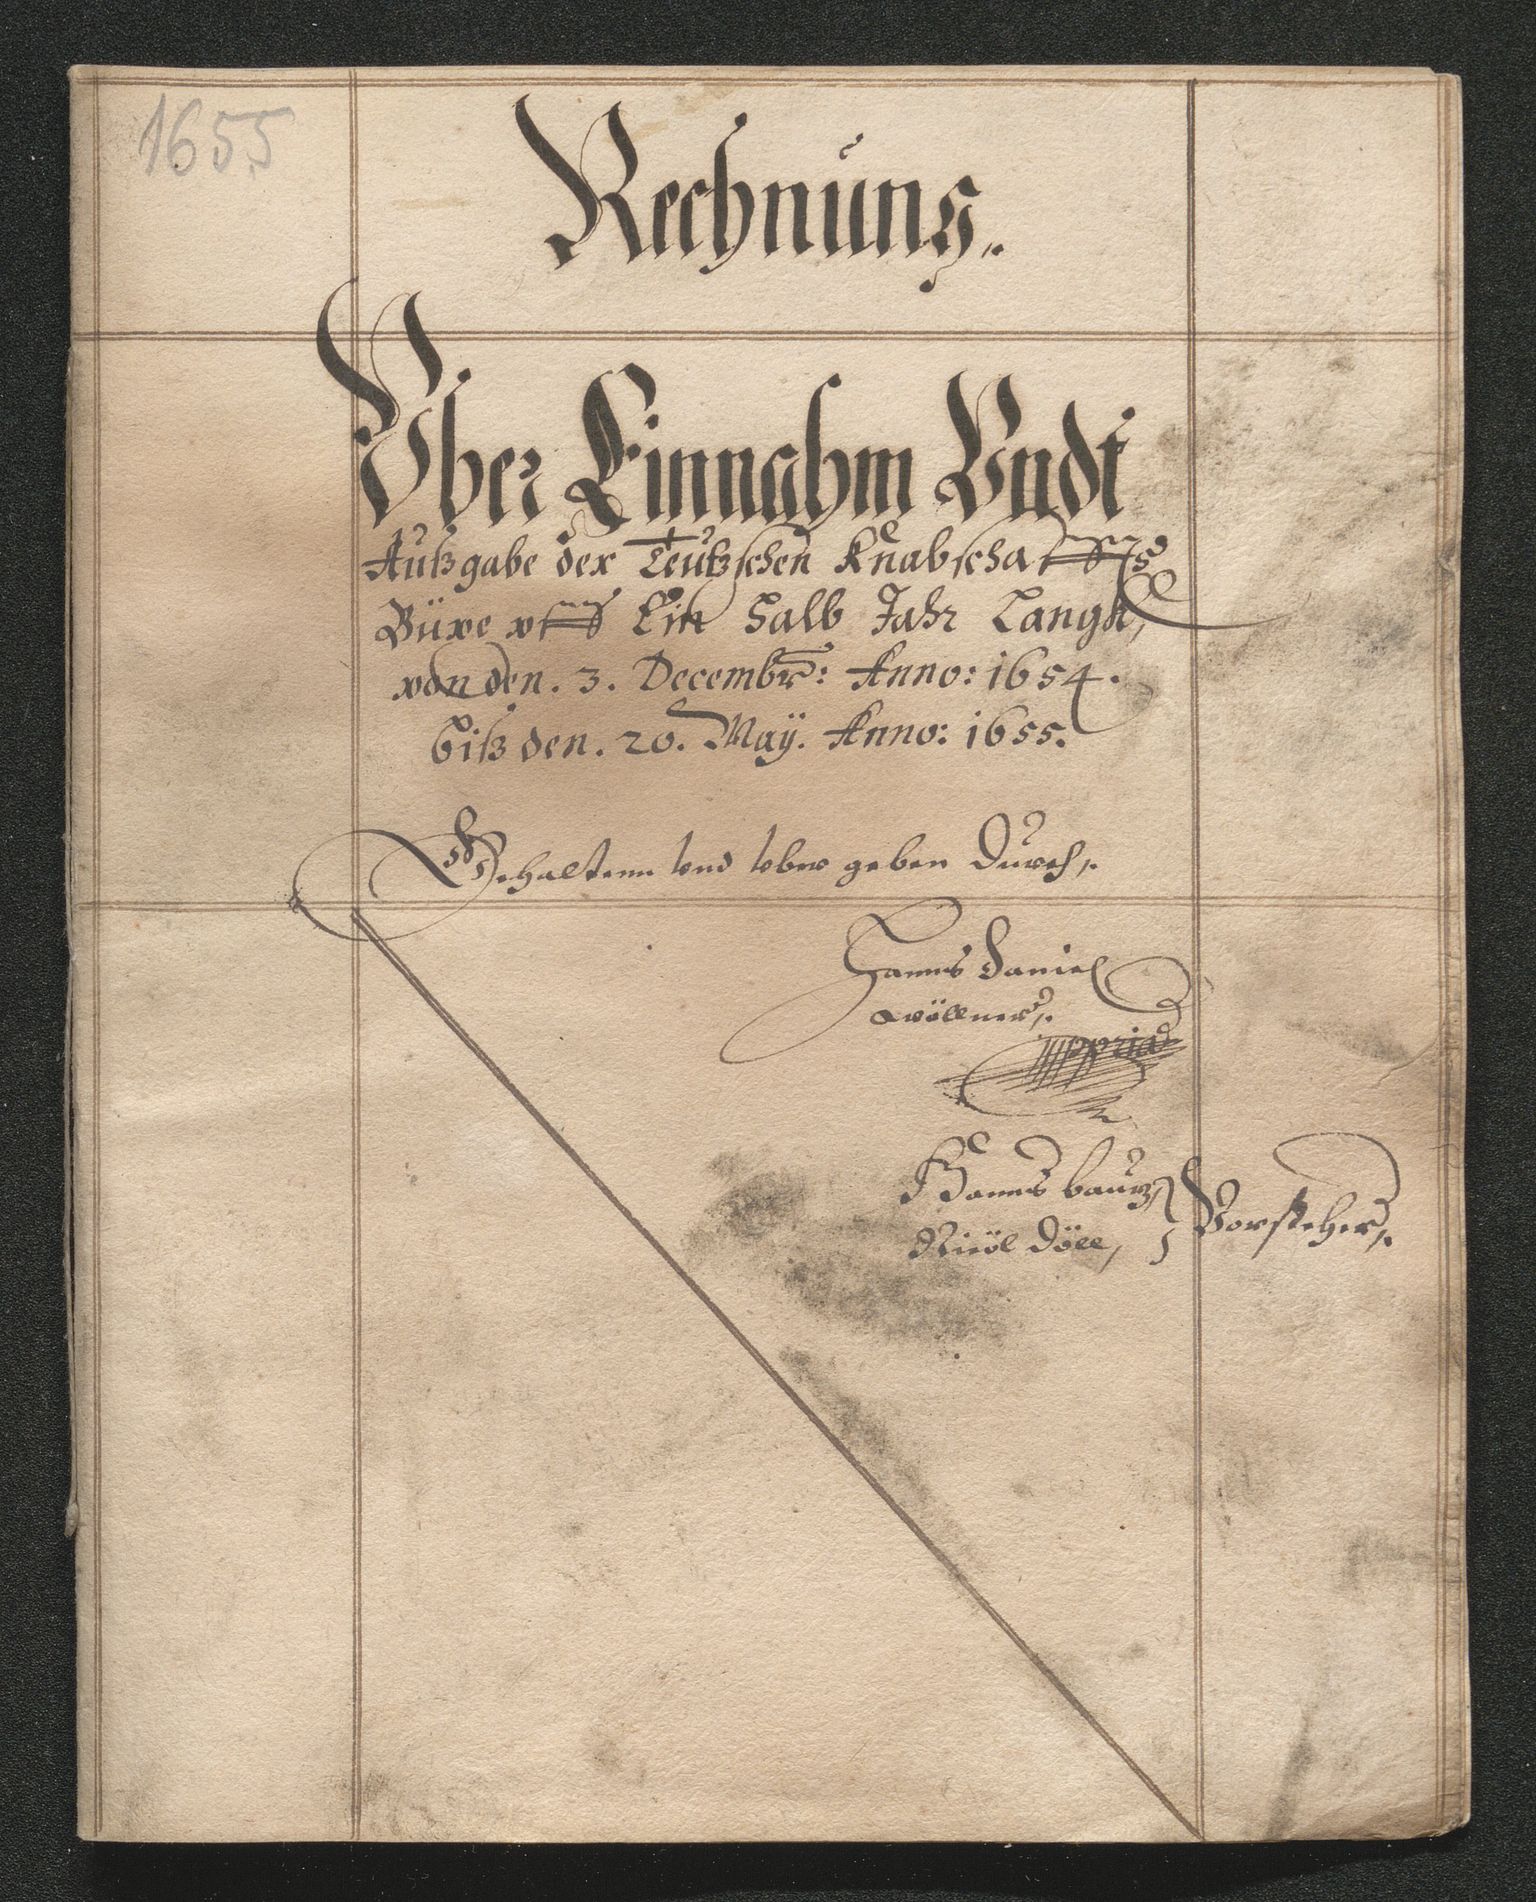 1655
Rechnung.
Vber Einnahm Vndt
Außgabe der Teutzschen Knabschaffts
Büxe vff Ein Halb Jahr Langk,
von den. 3. Decembr: Anno: 1654.
biß den. 20. Maÿ. Anno: 1655.
Gehaltenn vnd vber geben Durch,.
Hanns Daniel
wöllner,.
mppria
Hanns baur,
Nicöl Döll, } Vorsteher,.